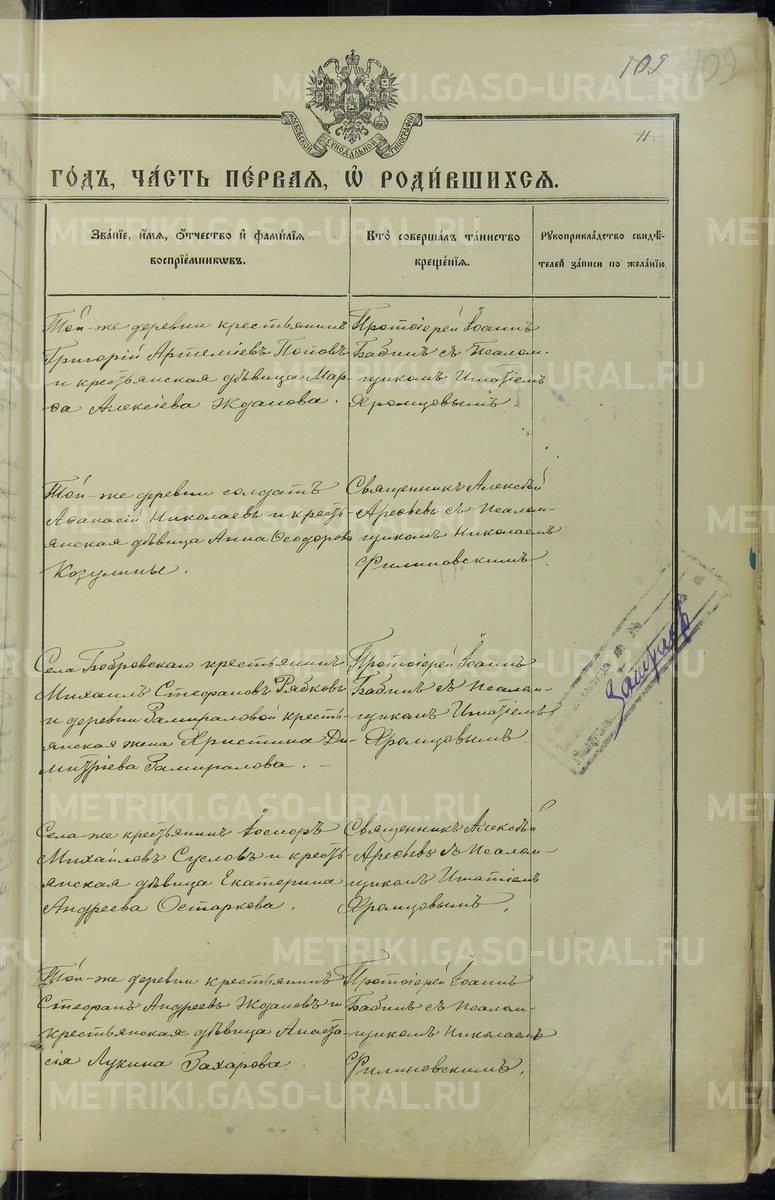 109 109
МОСКОВСКОЙ СѴНОДАЛЬНОЙ ТИПОГРАФІИ
11.
ГО́ДЪ, ЧА́СТЬ ПЕ́РВАЯ, Ѡ҆ РОДИ́ВШИХСЯ.
Зва́нїе, и҆́мя, ѻ҆́тчество и҆ фами́лїя
воспрїе́мникѡвъ.
Кто̀ соверша́лъ та́инство
креще́нїя.
Рꙋкоприкла́дство свидѣ́-
телей за́писи по жела́нїю.
Той-же деревни крестьянинъ
Григорій Артеміевъ Поповъ
и крестьянская дѣвица Мар-
ѳа Алексіева Жданова.
Протоіерей Іоаннъ
Бабинъ съ псалом-
щикомъ Игнатіемъ
Хромцовымъ
Той-же деревни солдатъ
Аѳанасій Николаевъ и кресть-
янская дѣвица Анна Ѳеодорова
Козулины.
Священникъ Алексѣй
Арефьевъ съ псалом-
щикомъ Николаемъ
Филиновскимъ.
Села Бобровскаго крестьянинъ
Михаилъ Стефановъ Рябковъ
и деревни Замираловой кресть-
янская жена Христина Ди-
митріева Замиралова.
Протоіерей Іоаннъ
Бабинъ съ псалом-
щикомъ Игнатіемъ
Хромцовымъ
Села-же крестьянинъ
Михаиловъ Сусловъ и кресть-
янская дѣвица Екатерина
Андреева Остаркова.
Священникъ Алексѣй
Арефьевъ съ псалом-
щикомъ Игнатіемъ
Хромцовымъ.
Той-же деревни крестьянинъ
Стефанъ Андреевъ Ждановъ и
крестьянская дѣвица Анаста-
сія Лукина Захарова.
Протоіерей Іоаннъ
Бабинъ съ псалом-
щикомъ Николаемъ
Филиновскимъ.
METRIKI.GASO-URAL.RU